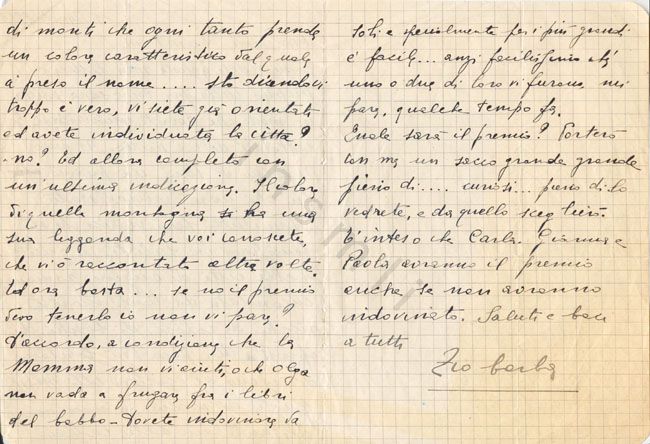 di monti che ogni tanto prende
un colore caratteristico dal quale
à preso il nome.... sto dicendovi
troppo è vero, vi siete già orientati
ed avete individuata la città?
-no? Ed allora completo con
un'ultima indicazione. Il colore
di quella montagna ha una
sua leggenda che voi conoscete,
che vi ò raccontata altra volta.
Ed ora basta... se no il premio
devo tenerlo io non vi pare?
D'accordo, a condizione che la
Mamma non vi aiuti, o che Olga
non vada a frugare fra i libri
del babbo - Dovete indovinare da
soli e specialmente per i più grandi
è facile... anzi facilissimo chè
uno o due di loro vi furono, mi
pare, qualche tempo fa.
Quale sarà il premio? Porterò
con me un sacco grande grande
pieno di.... curiosi... pieno di lo
vedrete, e da quello sceglierò.
È inteso che Carla, Gianna e
Paola avranno il premio
anche se non avranno
indovinato. Saluti e baci
a tutti
Zio barba